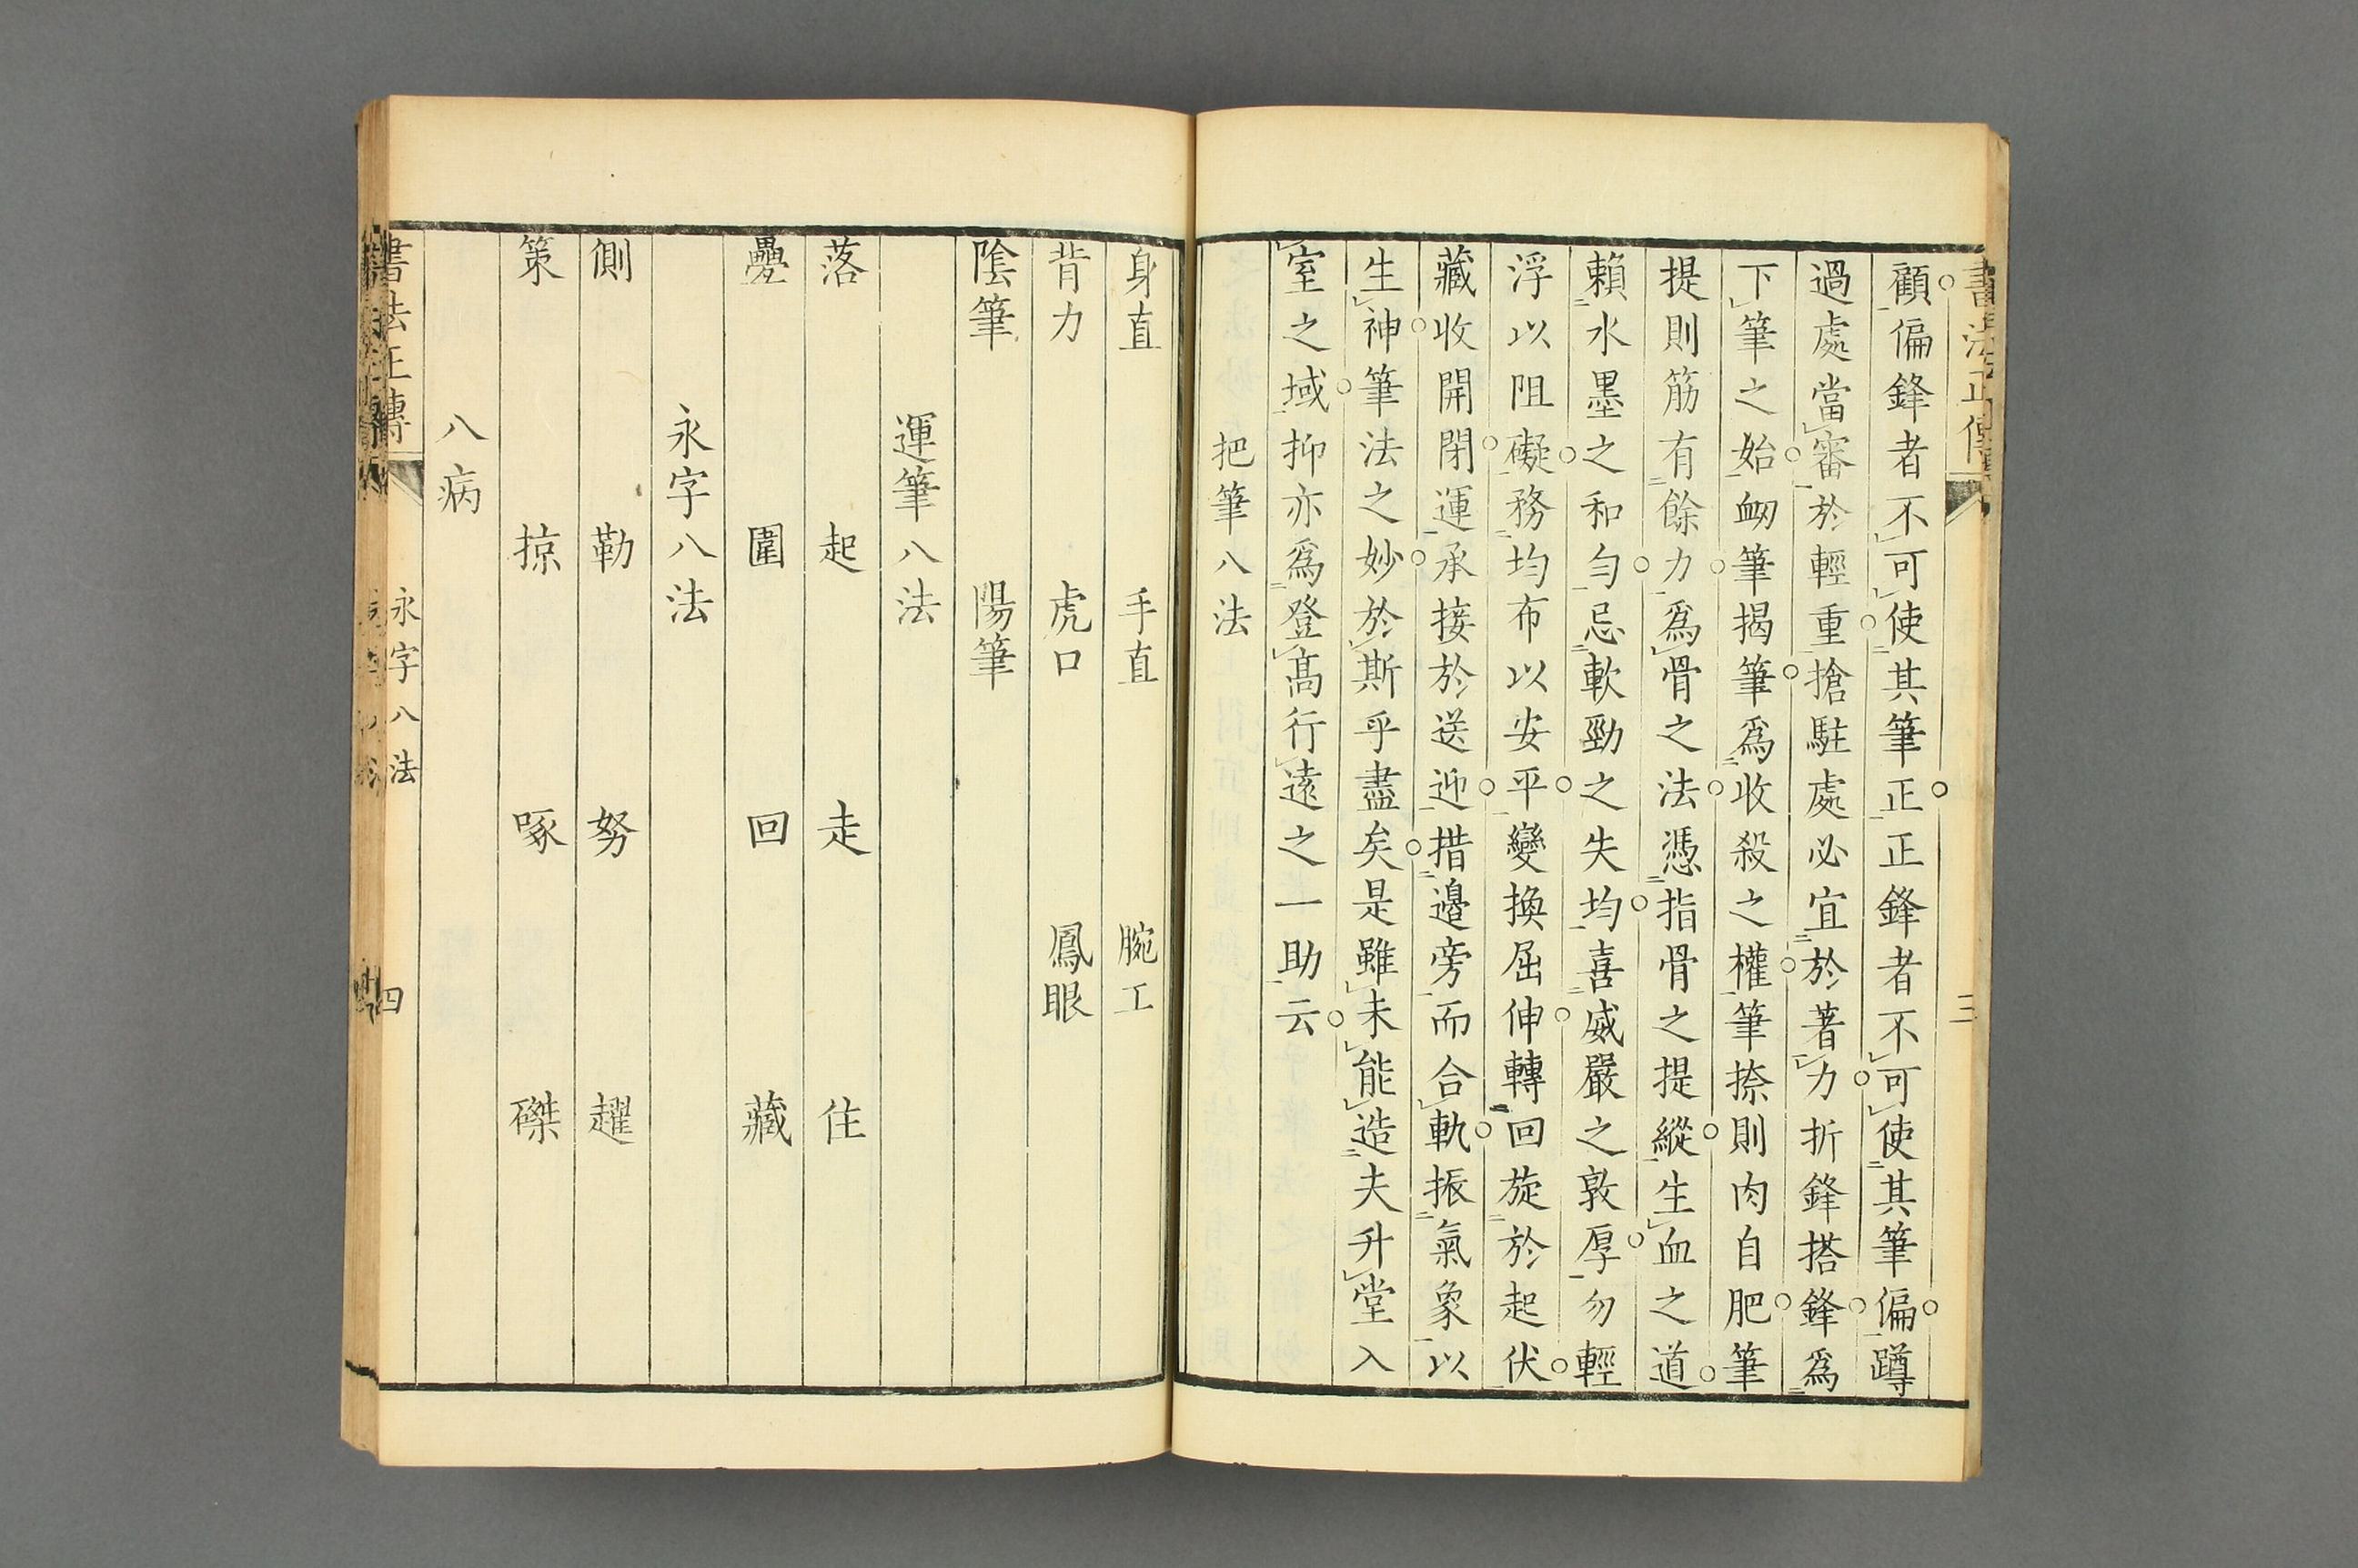 書法正傳
三
顧偏鋒者不可使其筆正正鋒者不可使其筆偏蹲
過處當審於輕重搶駐處必宜於著力折鋒搭鋒爲
下筆之始衄筆揭筆爲收殺之權筆捺則肉自肥筆
提則筋有餘力爲骨之法憑指骨之提縱生血之道
賴水墨之和勻忌軟勁之失均喜威嚴之敦厚勿輕
浮以阻礙務均布以安平變換屈伸轉回旋於起伏
藏收開閉運承接於送迎措邊旁而合軌振氣象以
生神筆法之妙於斯乎盡矣是雖未能造夫升堂入
室之域抑亦爲登高行遠之一助云
把筆八法
身直 手直 腕工
背力 虎口 鳳眼
陰筆 陽筆
運筆八法
落 起 走 住
疊 圍 回 藏
永字八法
側 勒 努 趯
策 掠 啄 磔
八病
書法正傳 永字八法 四